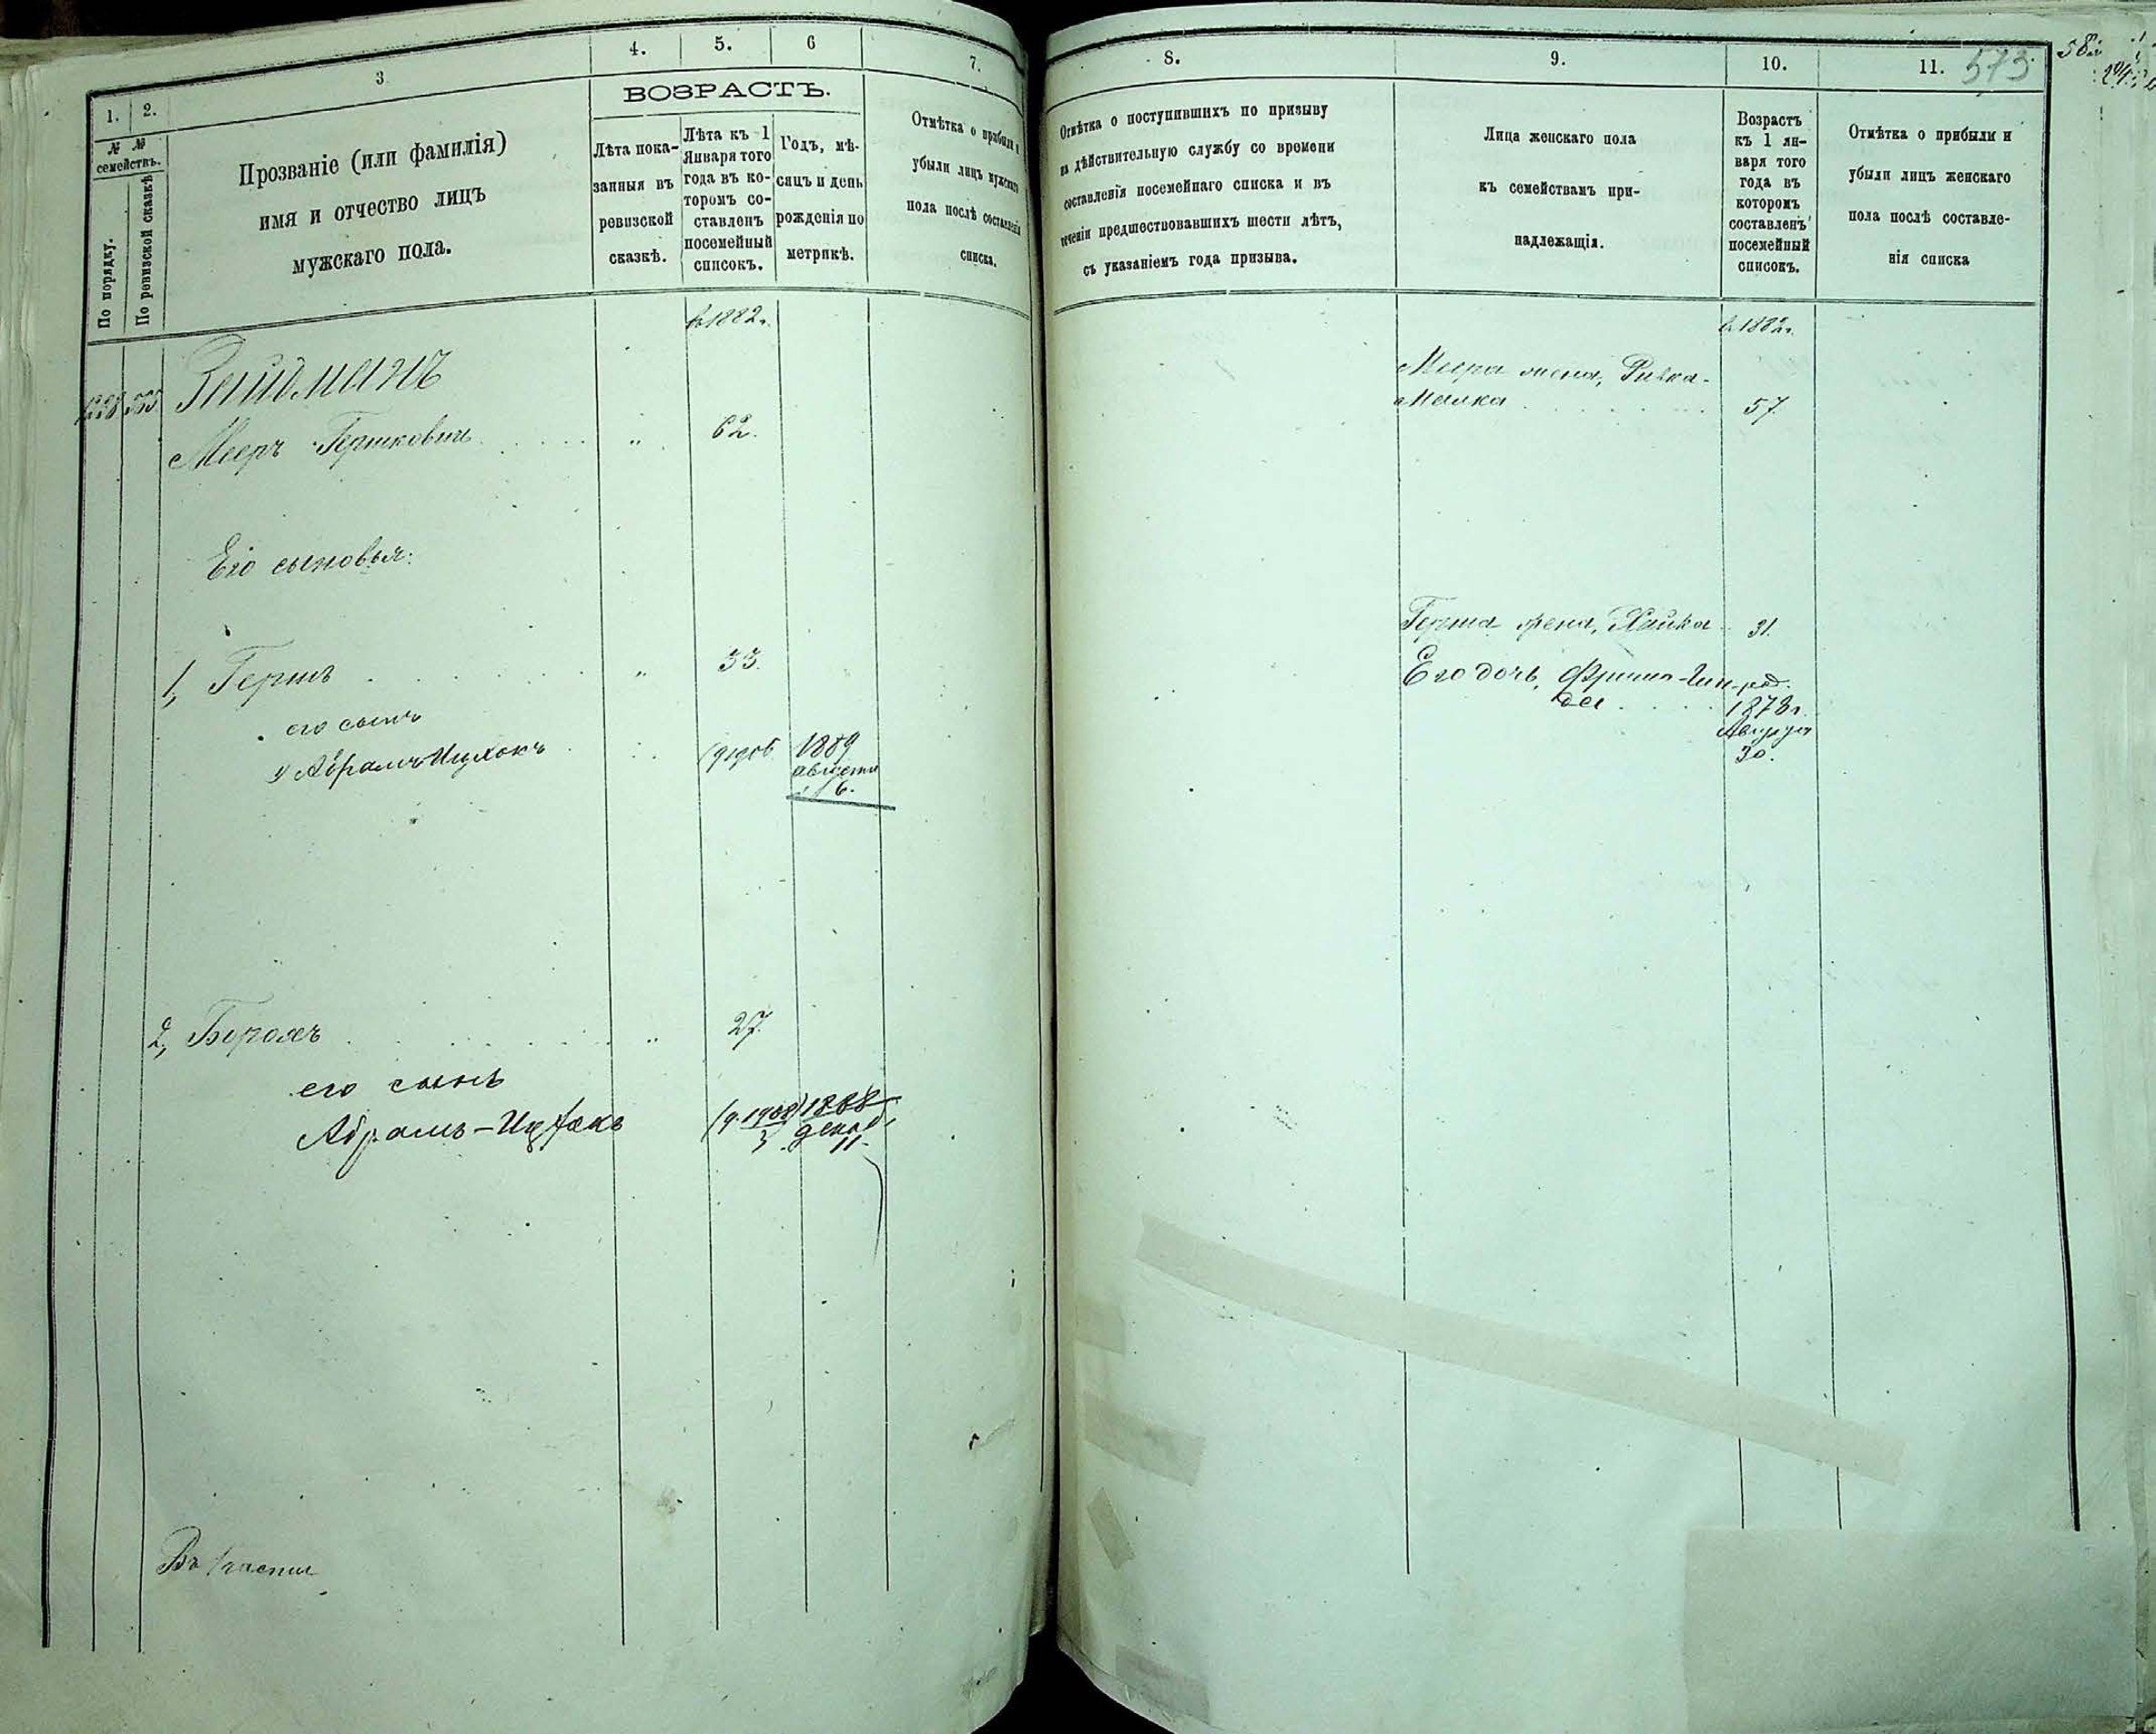 1. 2. 3 4. 5. 6 7.
ВОЗРАСТЪ.
№ №
семействъ.
По порядку.
По ревизской сказкѣ
Прозваніе (или фамилія)
имя и отчество лицъ
мужскаго пола.
Лѣта пока-
занныя въ
ревизской
сказкѣ.
Лѣта къ 1
Января того
года въ ко-
торомъ со-
ставленъ
посемейный
списокъ.
Годъ, мѣ-
сяцъ и день
рожденія по
метрикѣ.
Отмѣтка о прибыли и
убыли лицъ мужскаго
пола послѣ составленія
списка.
въ 1882 г.
Зайдманъ
Мееръ Гершковичъ 62.
Его сыновья:
1, Гершъ 33.
его сынъ
1) Абрамъ Ицхокъ 1889
августа
16.
2, Берель 27.
его сынъ
Абрамъ-Ицхакъ (п. 1908) 1888
декаб.
11.
8. 9. 10. 11. 573
Отмѣтка о поступившихъ по призыву
на дѣйствительную службу со времени
составленія посемейнаго списка и въ
теченіи предшествовавшихъ шести лѣтъ,
съ указаніемъ года призыва.
Лица женскаго пола
къ семействамъ при-
надлежащія.
Возрастъ
къ 1 ян-
варя того
года въ
которомъ
составленъ
посемейный
списокъ.
Отмѣтка о прибыли и
убыли лицъ женскаго
пола послѣ составле-
нія списка
въ 1882 г.
Меера жена, Ривка-
Малка 57
Герша жена, Хайка 31.
Его дочь, Фрима-Гин- род.
дея 1878 г.
Августа
30.